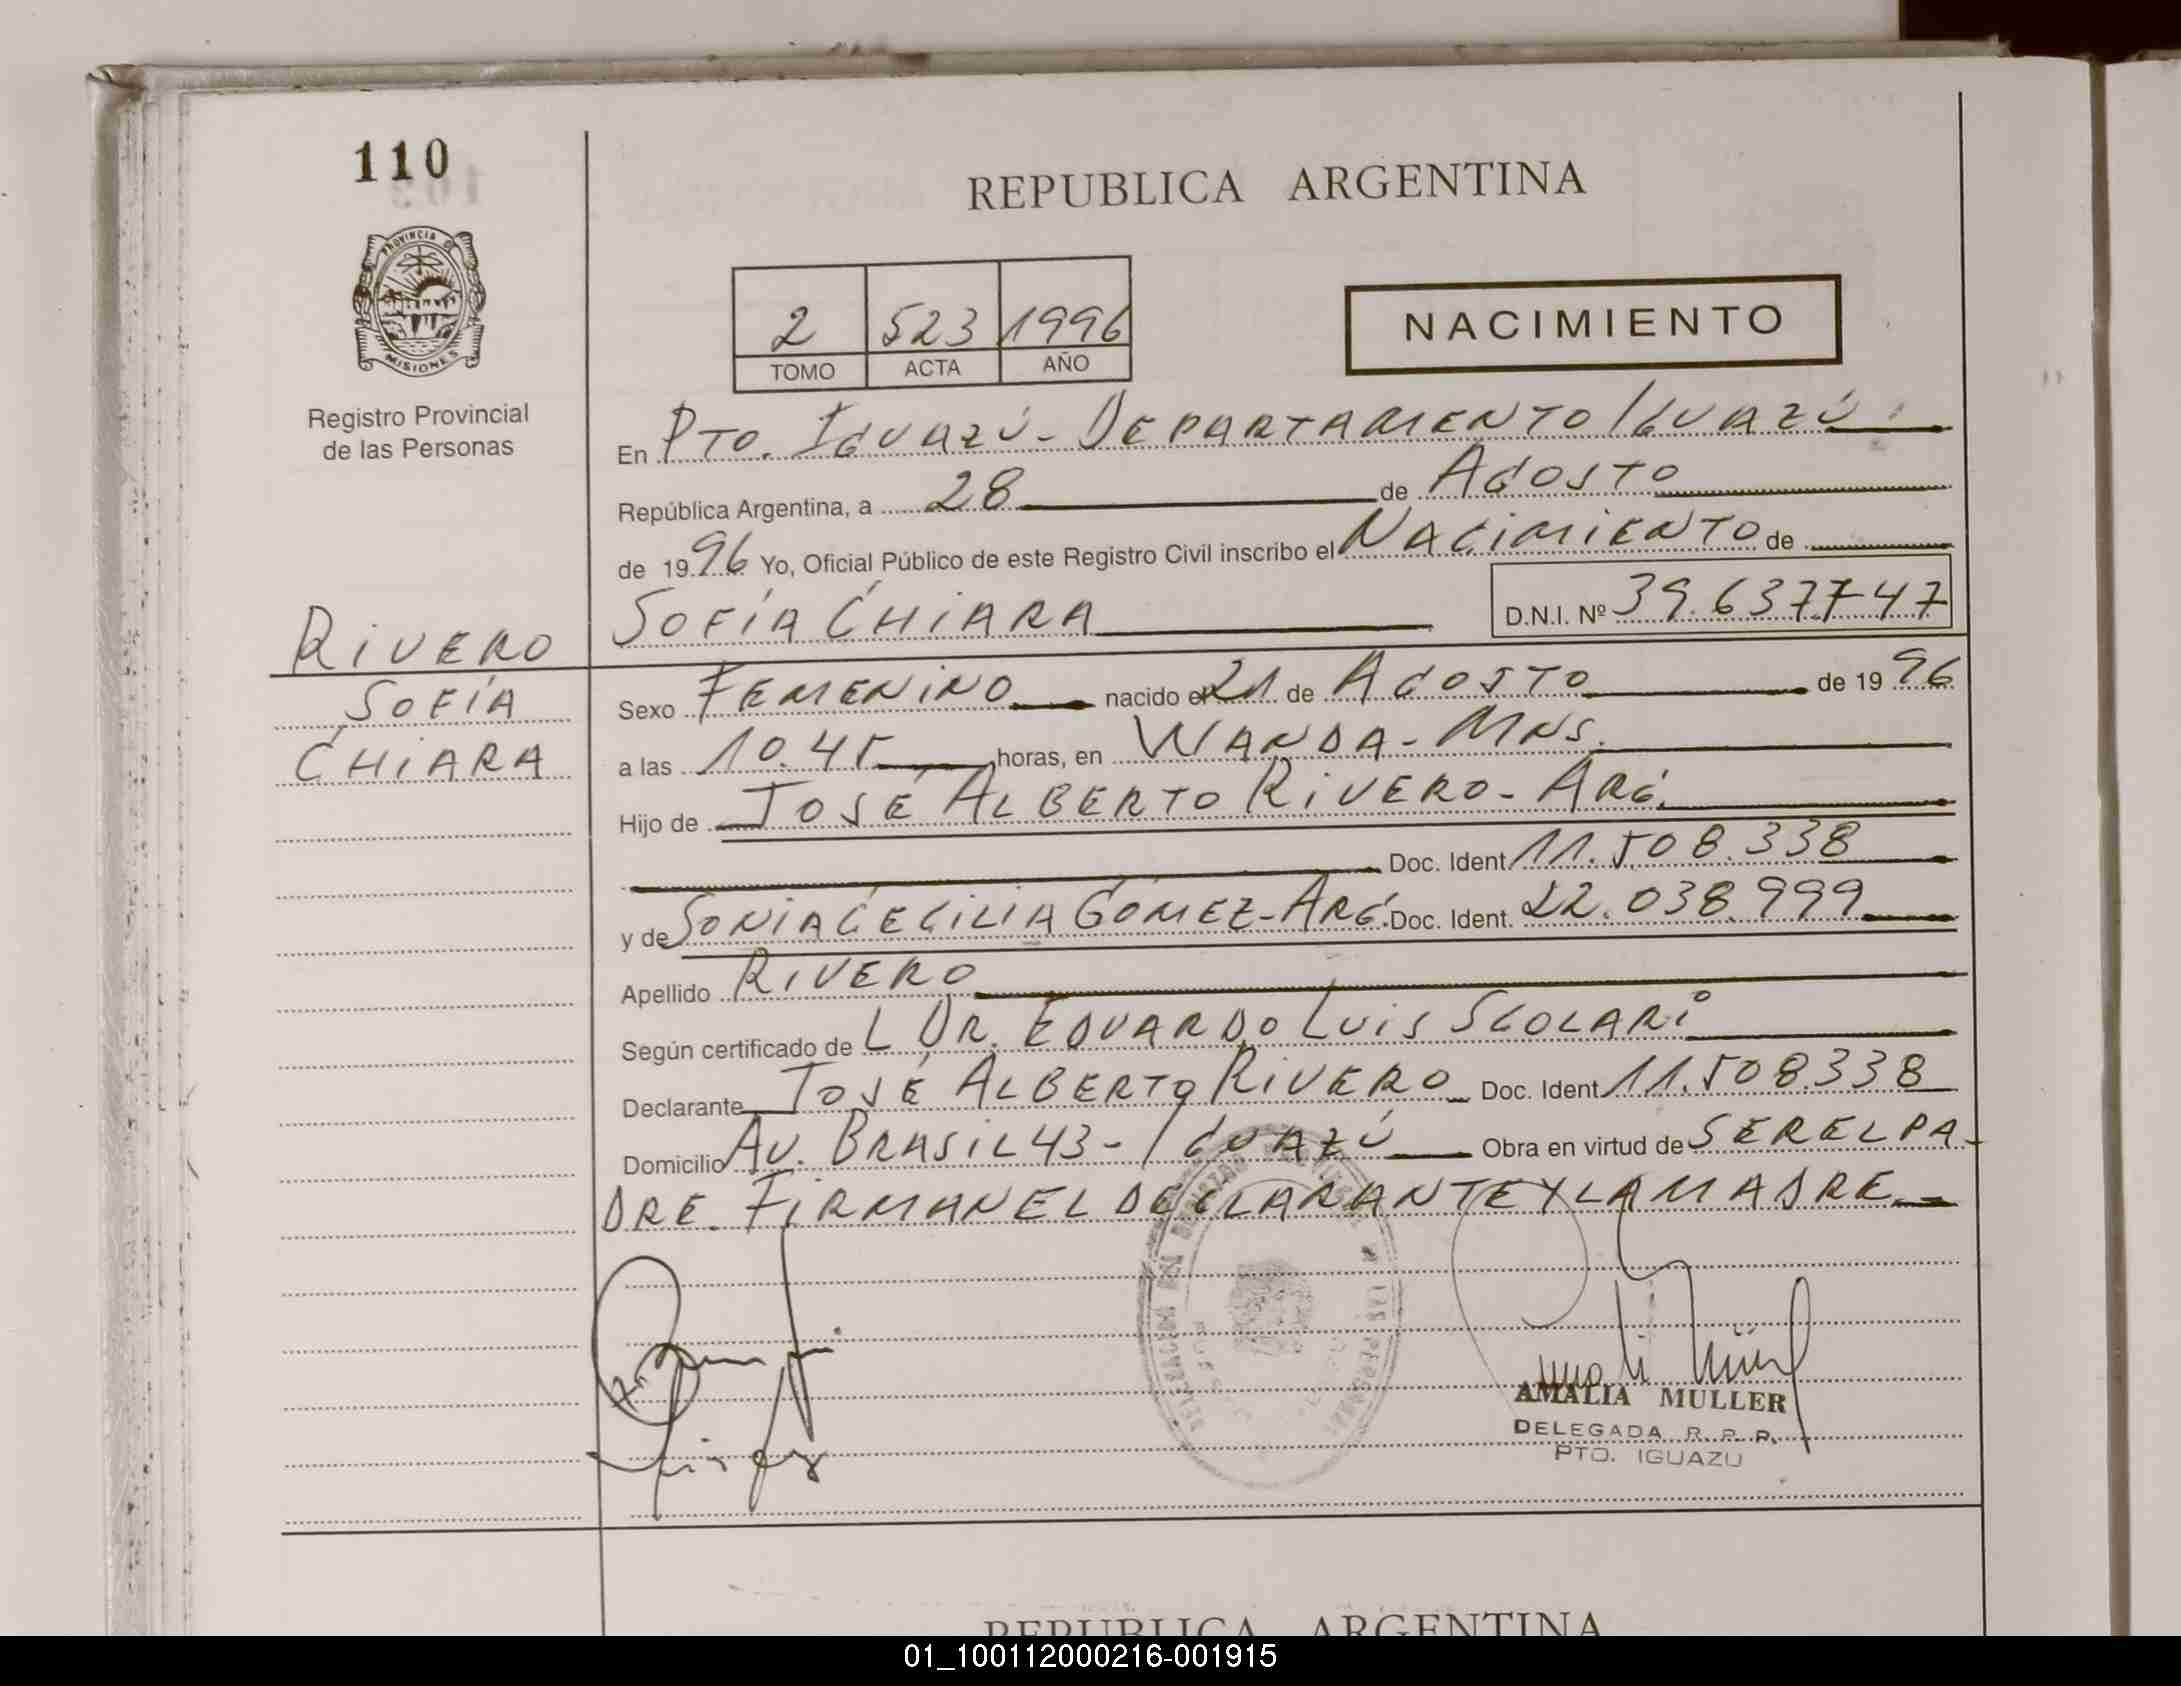 110
REPUBLICA ARGENTINA
PROVINCIA DE
MISIONES
Registro Provincial
de las Personas
2 523 1996
TOMO ACTA AÑO
NACIMIENTO
En PTO. IGUAZÚ - DEPARTAMENTO IGUAZÚ
República Argentina, a 28 de AGOSTO
de 1996 Yo, Oficial Público de este Registro Civil inscribo el NACIMIENTO de
SOFÍA CHIARA D.N.I. Nº 39.637747
RIVERO
SOFÍA
CHIARA
Sexo FEMENINO nacido el 21 de AGOSTO de 1996
a las 10.45 horas, en WANDA - MNS.
Hijo de JOSÉ ALBERTO RIVERO - ARG.
Doc. Ident 11.508.338
y de SONIA CECILIA GÓMEZ - ARG. Doc. Ident. 22.038.999
Apellido RIVERO
Según certificado de L DR. EDUARDO LUIS SCOLARI
Declarante JOSÉ ALBERTO RIVERO Doc. Ident 11.508338
Domicilio AV. BRASIL 43 - IGUAZÚ Obra en virtud de SER EL PA-
DRE. FIRMAN EL DECLARANTE Y LA MADRE
AMALIA MULLER
DELEGADA R. P. P.
PTO. IGUAZU
REPUBLICA ARGENTINA
01_100112000216-001915